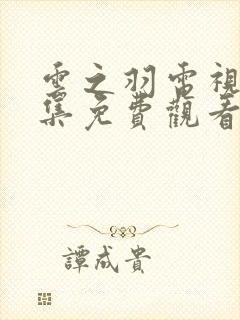 雲之羽電視
集免費觀看
譚成貴